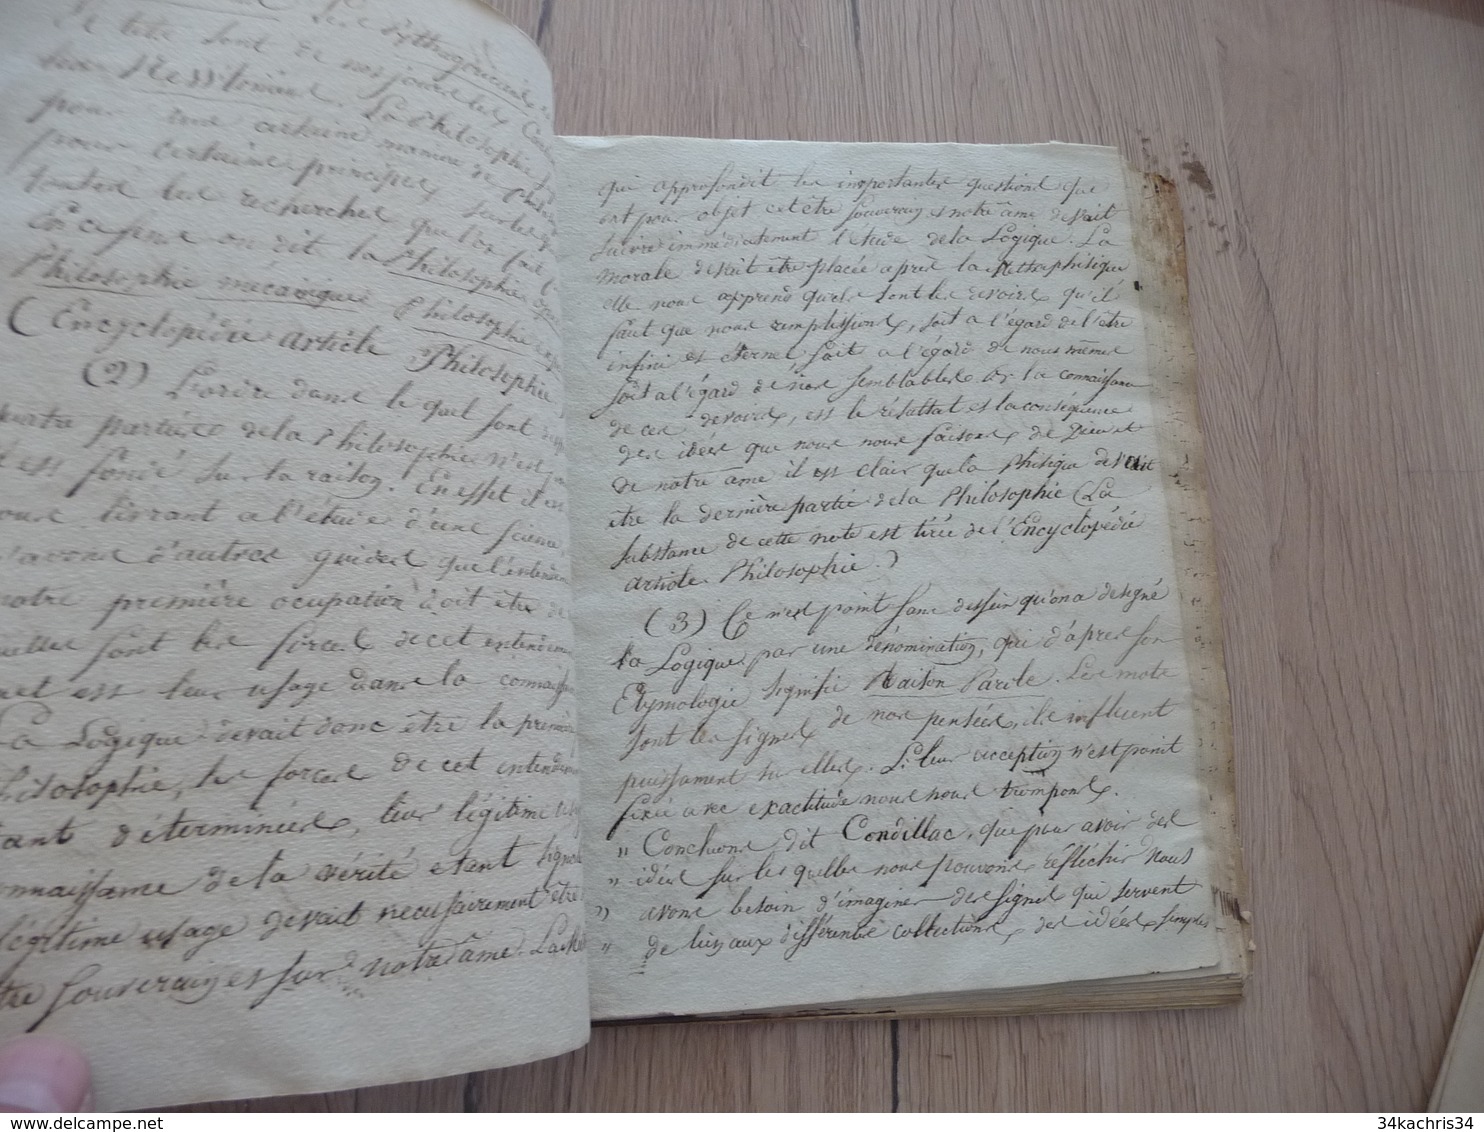 pour une certaine manière de
pour certains principes sur les
toutes les recherches que l'on fait
En ce sens on dit la Philosophie
Philosophie mécanique Philosophie
(Encyclopédie article Philosophie
(2) L'ordre dans le quel sont
partie de la Philosophie n'est
est fondé sur la raison. En effet
livrant a l'étude d'une science,
n'avons d'autres guides que
notre première ocupation doit être de
quelles sont les forces de cet
et est leur usage dans la
La Logique devait donc être la première
Philosophie, les forces de cet
étant déterminées, leur légitime
connaissance de la vérité etant
légitime usage devait necessairement être
souverain et sur notre âme. La
qui approfondit les importantes questions que
ont pour objet cet être souverain et notre âme devait
suivre immédiatement l'étude de la Logique. La
morale devait être placée après la Méthaphisique
elle nous apprend quels sont les devoirs qu'il
faut que nous remplissions, soit a l'égard de l'être
infini et éternel soit a l'égard de nous mêmes
soit a l'égard de nos semblables or la connaissance
de ces devoirs, est le résultat et la conséquence
des idées que nous nous faisons de Dieu et
de notre ame il est clair que la Phisique devait
être la dernière partie de la Philosophie (La
substance de cette note est tirée de l'Encyclopédie
article Philosophie.)
(3) Ce n'est point sans dessein qu'on a désigné
la Logique par une dénomination, qui d'après son
Etymologie signifie Raison Parole. Les mots
sont les signes de nos pensées, ils influent
puissament sur elles. Si leur acception n'est point
fixée avec exactitude nous nous trompons.
" Concluons, dit Condillac, que pour avoir des
" idées sur les quelles nous pouvons réfléchir nous
" avons besoin d'imaginer des signes qui servent
" de liens aux différentes collections, des idées simples
34kachris34
www.delcampe.net
34kachris34